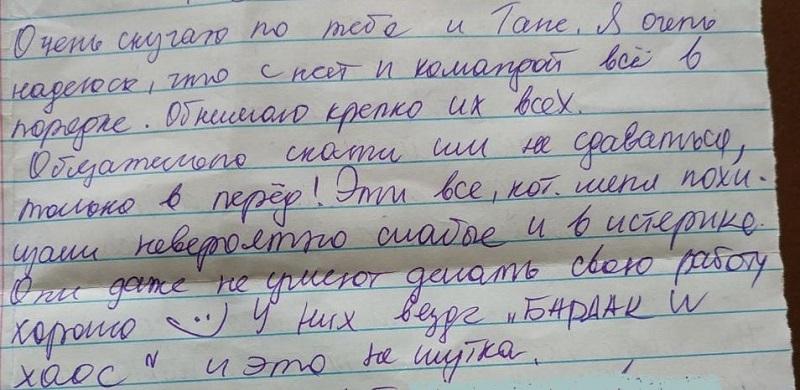 Очень скучаю по тебе и Тане. Я очень
надеюсь, что с нет и командой всё в
порядке. Обнимаю крепко их всех.
Обязательно скажи им не сдаваться,
только в перёд! Эти все, кот. меня похи-
щали невероятно слабые и в истерике.
Они даже не умеют делать свою работу
хорошо :) У них везде „БАРДАК И
ХАОС" и это не шутка.